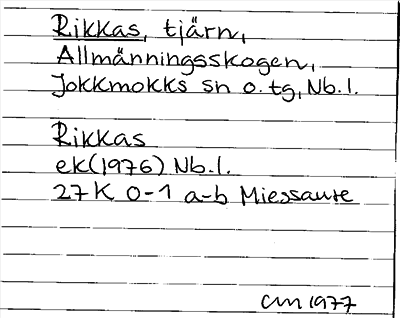 Rikkas, tjärn,
Allmänningsskogen,
Jokkmokks sn o. tg, Nb.l.
Rikkas
ek (1976) Nb.l.
27K 0-1 a-b Miessaure
CM 1977